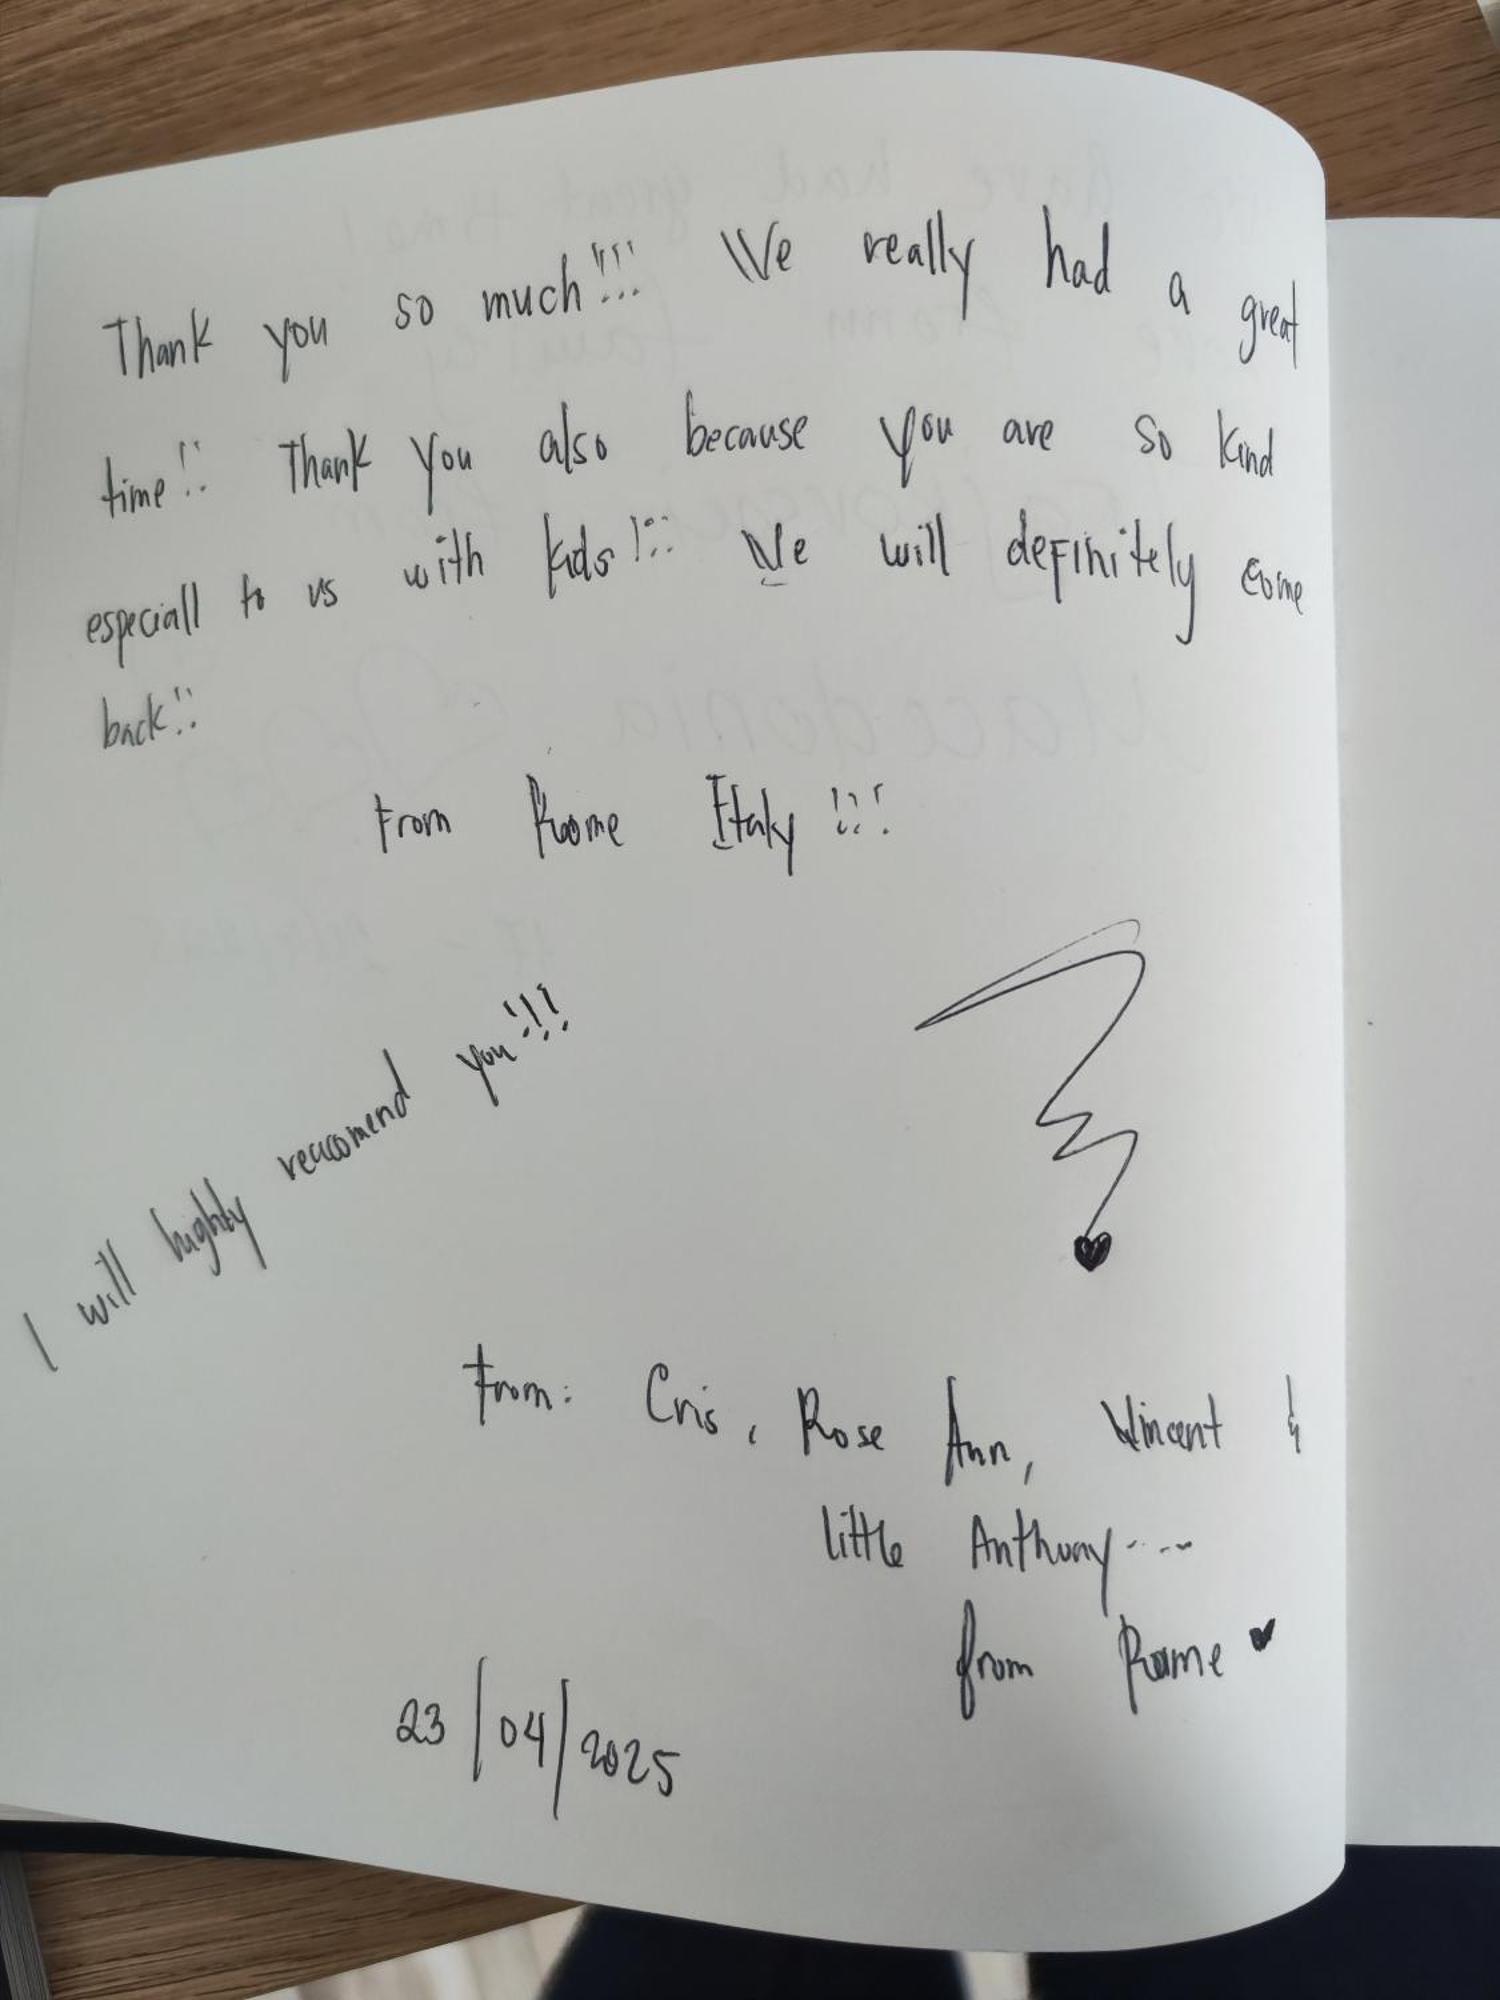 Thank you so much!!! We really had a great
time!! Thank you also because you are so kind
especiall to us with kids!!! We will definitely come
back!!
From Rome Italy !!!
I will highly reccomend you!!!
From: Cris, Rose Ann, Vincent &
little Anthony....
from Rome ♥
23/04/2025